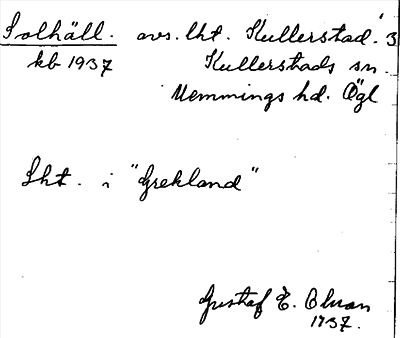 Solhäll. avs. lht. Kullerstad. 3
kb 1937 Kullerstads sn.
Memmings hd. Ögl
Lht. i "Grekland"
Gustaf E. Olsson
1937.